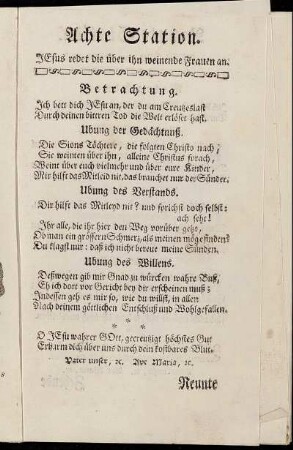 Achte Station.
JEsus redet die über ihn weinende Frauen an.
Betrachtung.
Ich bett dich JEsu an, der du am Creutze sast
Durch deinen bittren Tod die Welt erlöset hast.
Ubung der Gedächtnuß.
Die Sions Töchtere, die folgten Christo nach,
Sie weinten über ihn, alleine Christus sprach,
Weint über euch vielmehr und über eure Kinder,
Mir hilfft das Mitleid nit, das brauchet nur der Sünder.
Ubung des Verstands.
Dir hilft das Mitleyd nit? und sprichst doch selbst:
ach seht!
Ihr alle, die ihr hier den Weg vorüber geht,
Ob man ein grössern Schmerz, als meinen mög gefinden?
Du klagst nur: daß ich nicht bereue meine Sünden.
Ubung des Willens.
Deßwegen gib mir Gnad zu würcken wahre Buß,
Eh ich dort vor Gericht bey dir erscheinen muß;
Indessen geh es mir so, wie du willst, in allen
Nach deinem göttlichen Entschluß und Wohlgefallen.
* * *
O JEsu wahrer GOtt, gecreutzigt höchstes Gut
Erbarm dich über uns durch dein kostbares Blut.
Vater unser, ꝛc. Ave Maria, ꝛc.
Neunte